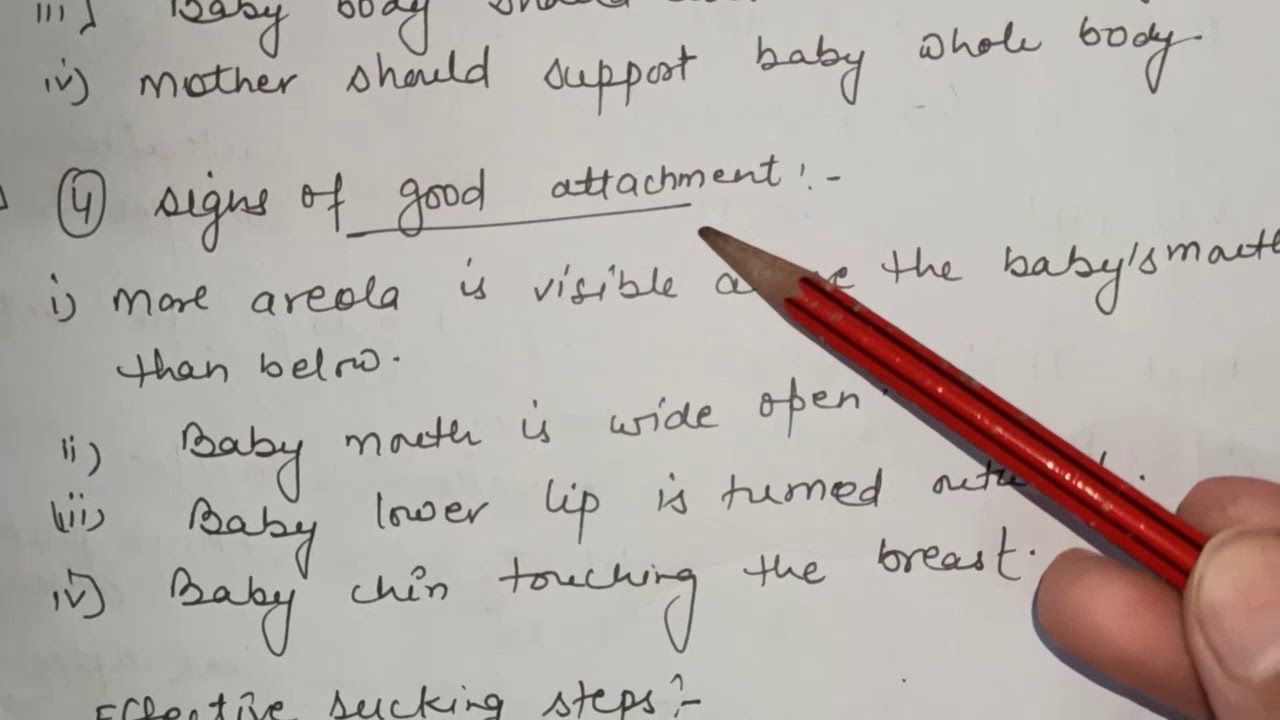 iii) Baby body should
iv) Mother should support baby whole body.
④ signs of good attachment:-
i) More areola is visible the baby's mouth
than below.
ii) Baby mouth is wide open.
iii) Baby lower lip is turned
iv) Baby chin touching the breast.
Effective sucking steps:-